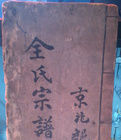 全氏宗譜
京兆郡